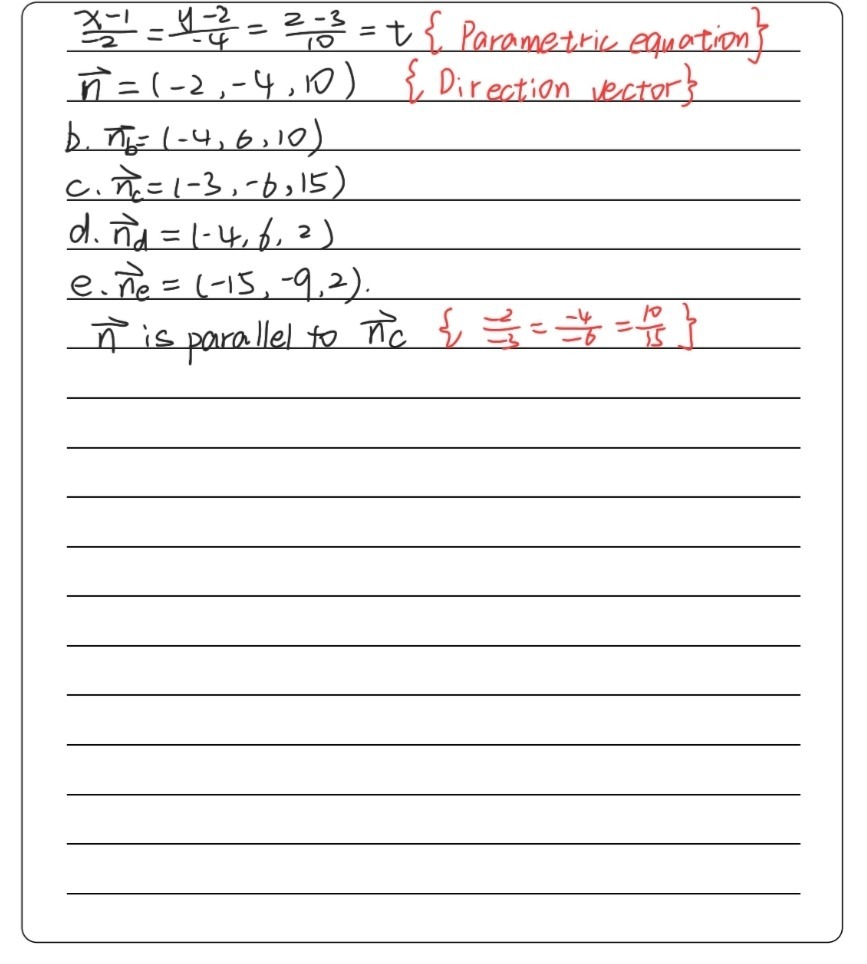 x-1/-2 = y-2/-4 = z-3/10 = t { Parametric equation}
n⃗ = (-2, -4, 10) { Direction vector}
b. n⃗b = (-4, 6, 10)
c. n⃗c = (-3, -6, 15)
d. n⃗d = (-4, 6, 2)
e. n⃗e = (-15, -9, 2).
n⃗ is parallel to n⃗c { -2/-3 = -4/-6 = 10/15 }